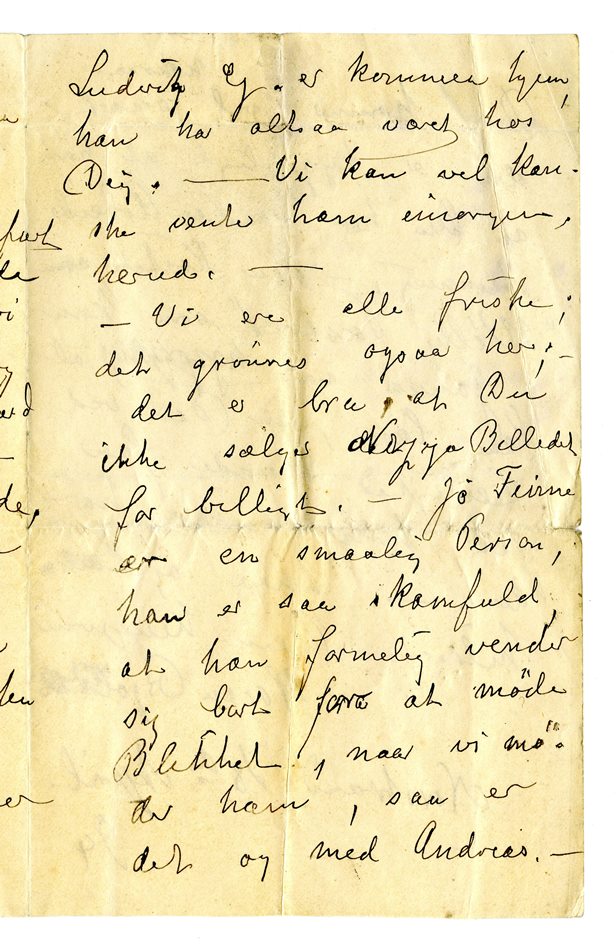 Ludvig Ej. er kommen hjem,
han har altsaa været hos
Dig. — Vi kan vel kan-
ske vente ham imorgen,
herud. —
— Vi ere alle friske;
det grønnes ogsaa her; —
det er bra at Du
ikke sælger Billedet
for billigt. — Jo
er en smaalig Person,
han er saa skamfuld,
at han formelig vender
sig bort for at møde
Blikket, naar vi mø-
der ham, saa er
det og med Andreas. —
fært
de
vi
de,
er